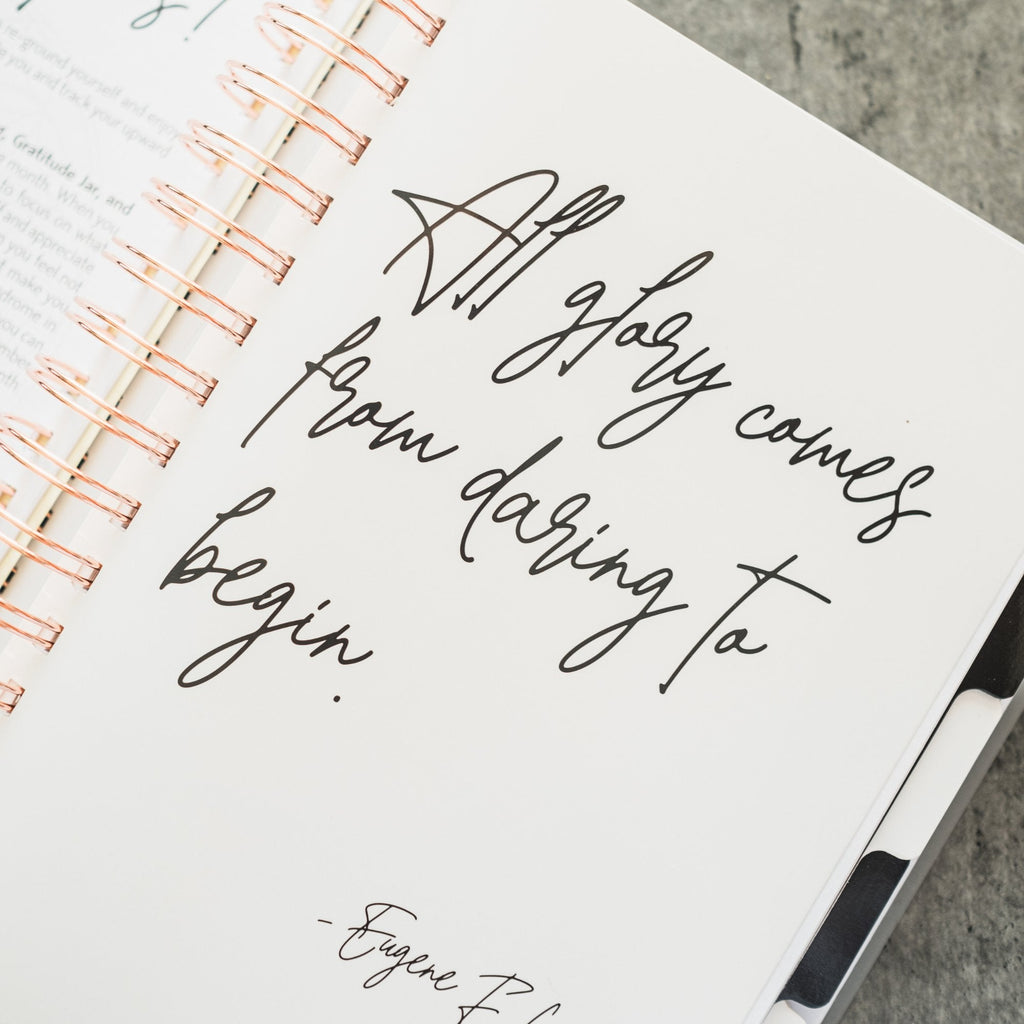 re-ground yourself and enjoy
you and track your upward
Gratitude Jar, and
month. When you
to focus on what
and appreciate
you feel not
make you
drome in
you can
All glory comes
from daring to
begin.
- Eugene